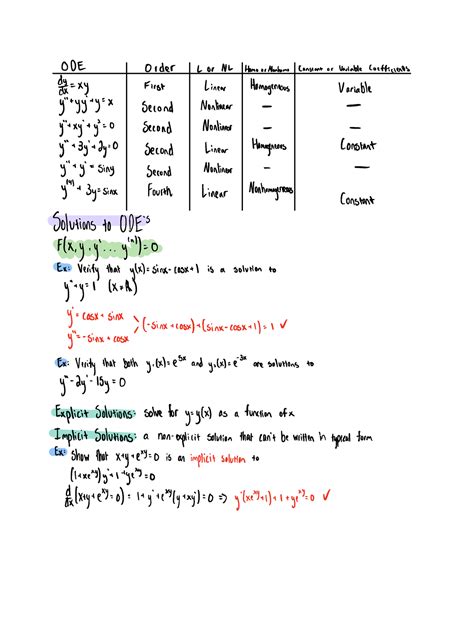 ODE Order L or NL Homo or Nonhomo Constant or Variable Coefficients
dy/dx = xy First Linear Homogeneous Variable
y''+yy'+y=x Second Nonlinear — —
y''+xy'+y²=0 Second Nonlinear — —
y''+3y'+2y=0 Second Linear Homogenous Constant
y''+y'=siny Second Nonlinear — —
y⁽⁴⁾+3y=sinx Fourth Linear Nonhomogeneous Constant
Solutions to ODE's
F(x,y,y'...y⁽ⁿ⁾)=0
Ex: Verify that y(x)=sinx-cosx+1 is a solution to
y''+y=1
y'=cosx+sinx
y''=-sinx+cosx
(-sinx+cosx)+(sinx-cosx+1)=1 ✓
Ex: Verify that both y₁(x)=e⁵ˣ and y₂(x)=e⁻³ˣ are solutions to
y''-2y'-15y=0
Explicit Solutions: solve for y=y(x) as a function of x
Implicit Solutions: a non-explicit solution that can't be written in typical form
Ex: Show that x+y+e^xy=0 is an implicit solution to
(1+xe^xy)y'+1+ye^xy=0
d/dx(x+y+e^xy=0) = 1+y'+e^xy(y+xy')=0 => y'(xe^xy+1)+1+ye^xy=0 ✓